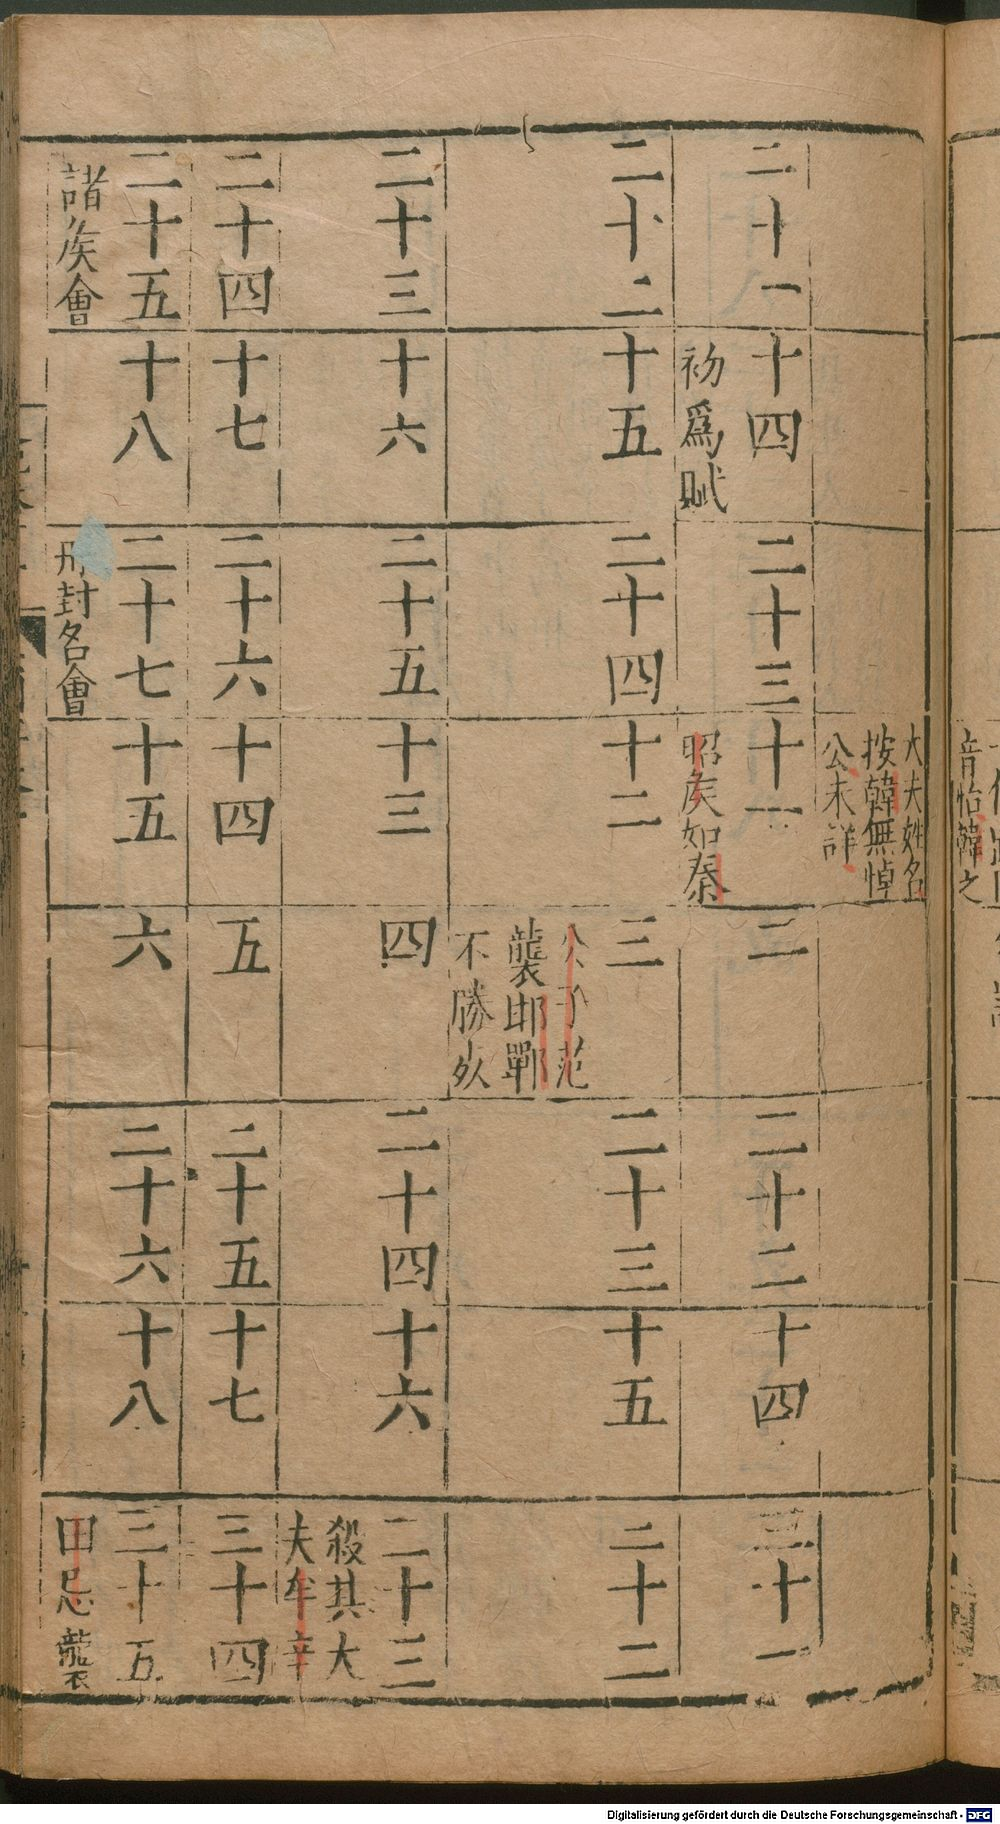 音怡韓之
大夫姓名
按韓無悼
公未詳
二十一 十四 二十三 十一 二 二十二 十四 三十一
初爲賦
昭矦如秦
二十二 十五 二十四 十二 三 二十三 十五 二十二
公子范
襲邯鄲
不勝死
二十三 十六 二十五 十三 四 二十四 十六 二十三
殺其大
夫牟辛
二十四 十七 二十六 十四 五 二十五 十七 三十四
二十五 十八 二十七 十五 六 二十六 十八 三十五
諸矦會
丹封名會
田忌襲
Digitalisierung gefördert durch die Deutsche Forschungsgemeinschaft - DFG